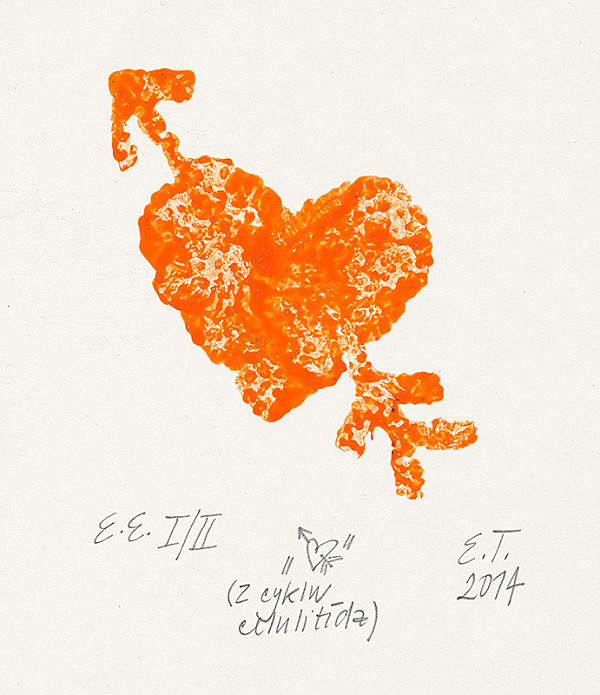 E.E. I/II
" "
(z cyklu
celulitidz)
E.T.
2014